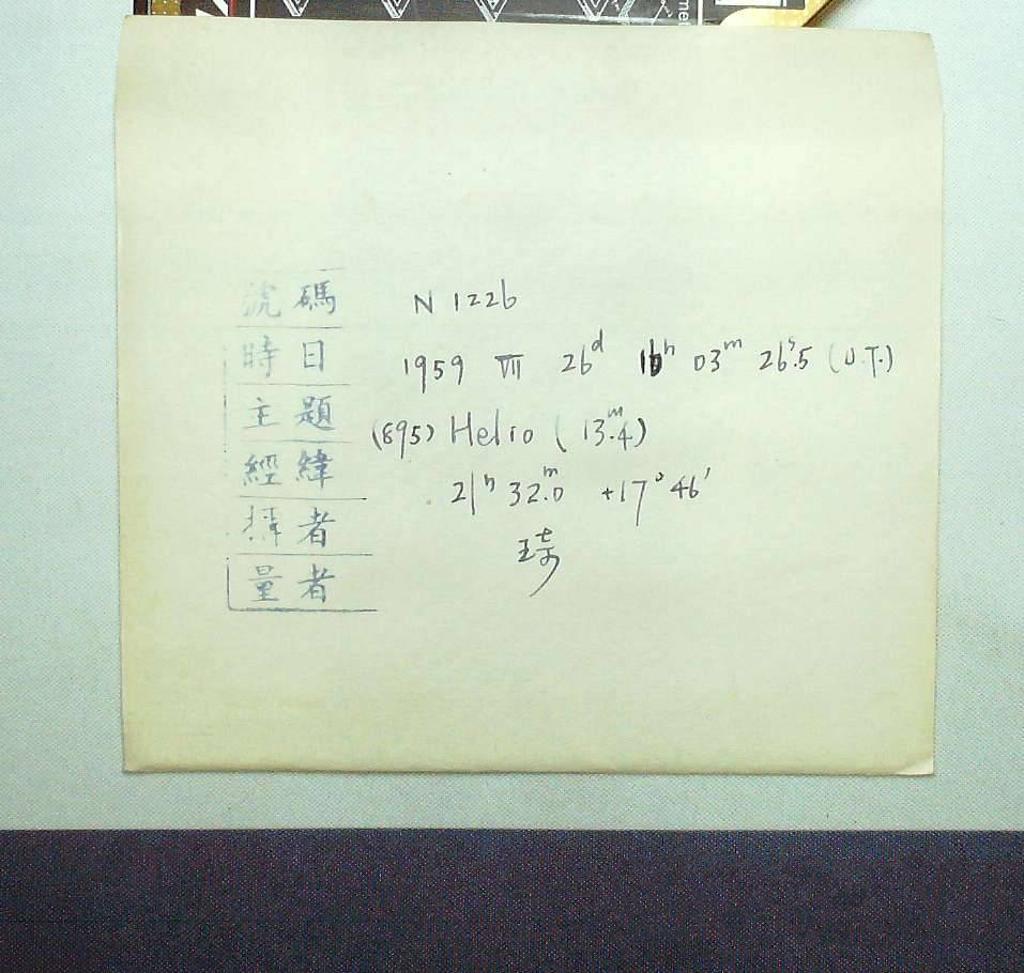 號碼 N 1226
時日 1959 VII 26ᵈ 16ʰ 03ᵐ 26ˢ.5 (U.T.)
主題 (895) Helio (13ᵐ.4)
經緯 21ʰ 32ᵐ.0 +17° 46'
攝者 琦
量者